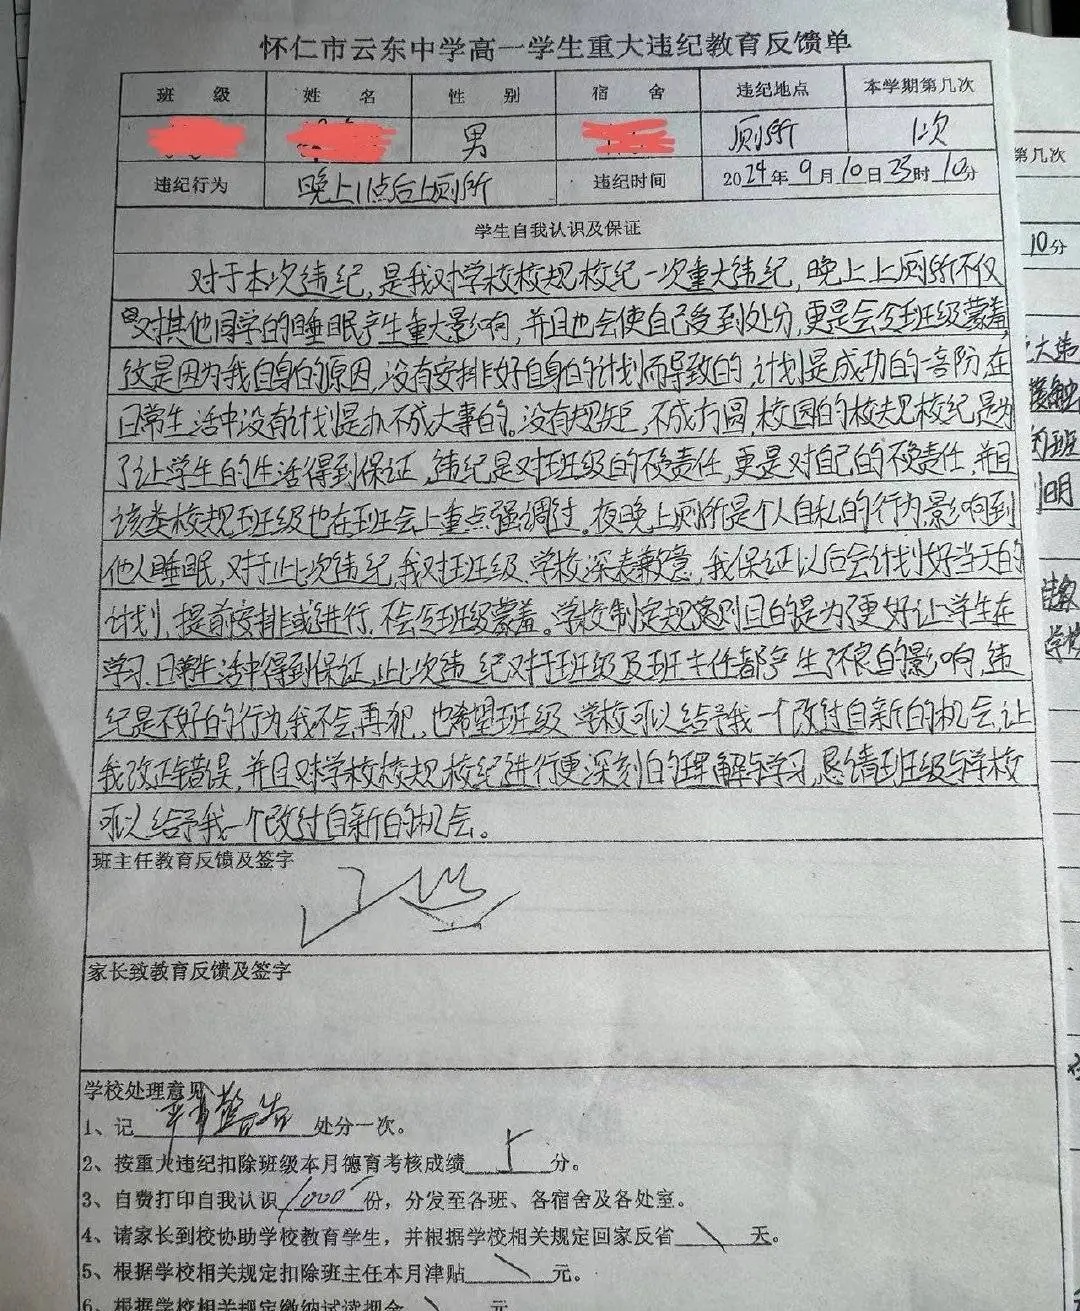 怀仁市云东中学高一学生重大违纪教育反馈单
班 级 姓 名 性 别 宿 舍 违纪地点 本学期第几次
男 厕所 1次
违纪行为 晚上11点后上厕所 违纪时间 2024年9月10日23时10分
学生自我认识及保证
对于本次违纪,是我对学校校规校纪一次重大违纪,晚上上厕所不仅
对其他同学的睡眠产生重大影响,并且也会使自己受到处分,更是会令班级蒙羞
这是因为我自身的原因,没有安排好自身的计划而导致的,计划是成功的一部阶,在
日常生活中没有计划是办不成大事的。没有规矩,不成方圆,校园的校规校纪,是为
了让学生的生活得到保证,违纪是对班级的不负责任,更是对自己的不负责任,并且
该类校规班级也在班会上重点强调过。夜晚上厕所是个人自私的行为,影响到
他人睡眠,对于此次违纪,我对班级、学校深表歉意,我保证以后会计划好当天的
计划,提前安排或进行,不会令班级蒙羞。学校制定规则目的是为了更好让学生在
学习、日常生活中得到保证,此次违纪对于班级及班主任都产生了不良的影响,违
纪是不好的行为,我不会再犯,也希望班级、学校可以给予我一个改过自新的机会,让
我改正错误,并且对学校校规、校纪进行更深刻的理解与学习,恳请班级与学校
可以给予我一个改过自新的机会。
班主任教育反馈及签字
家长致教育反馈及签字
学校处理意见
1、记严重警告处分一次。
2、按重大违纪扣除班级本月德育考核成绩 分。
3、自费打印自我认识1000份,分发至各班、各宿舍及各处室。
4、请家长到校协助学校教育学生,并根据学校相关规定回家反省\天。
5、根据学校相关规定扣除班主任本月津贴\元。
第几次
10分
大违
接触
的班
明
学校